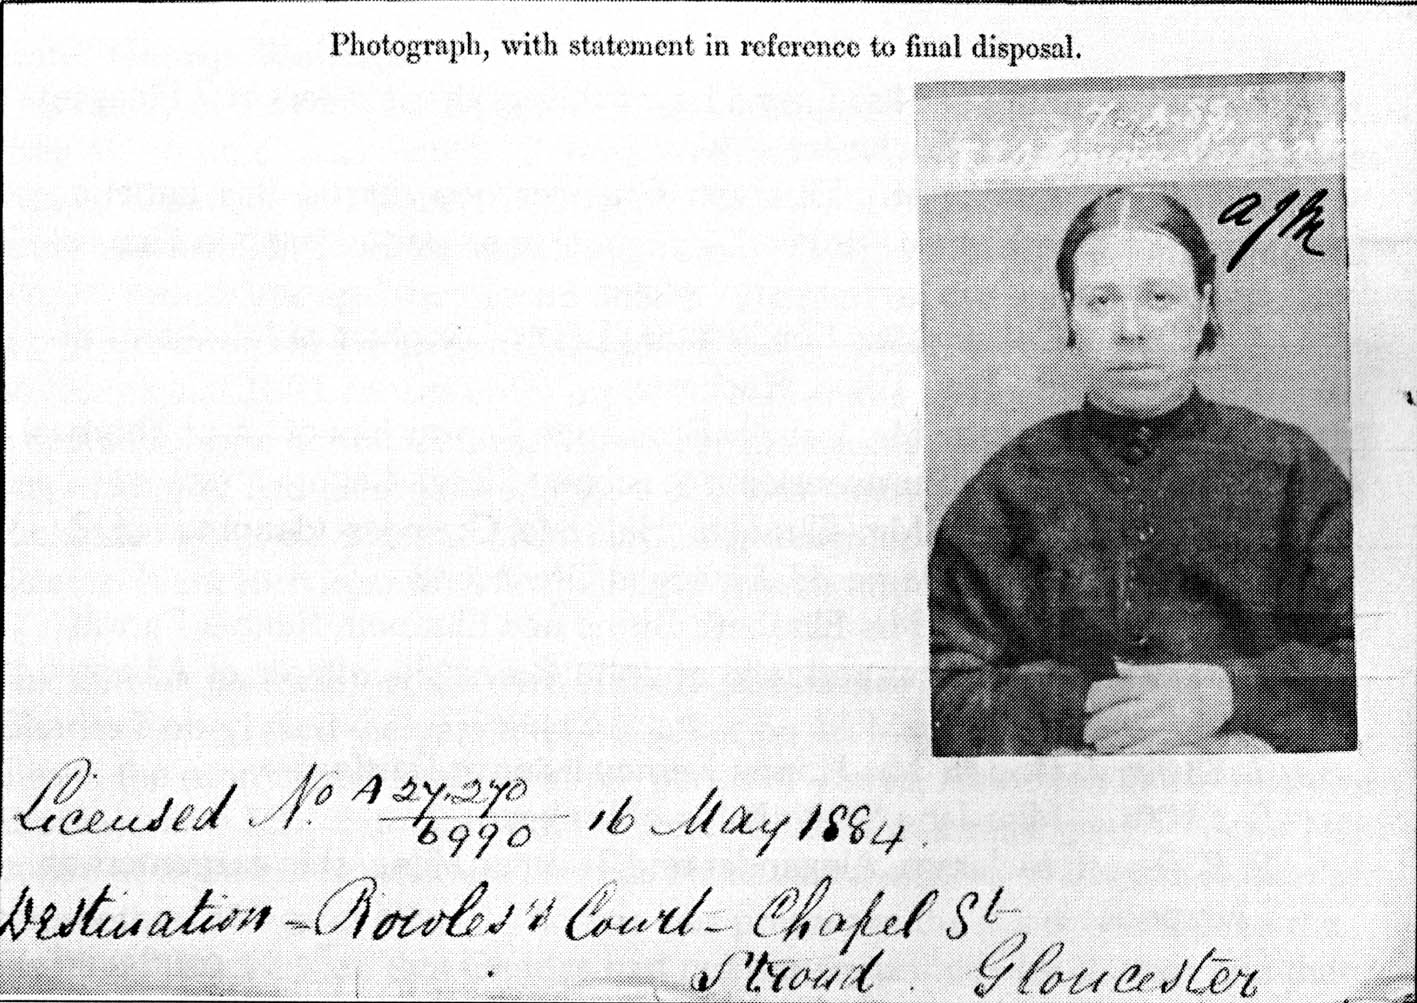 Photograph, with statement in reference to final disposal.
a J M
Licensed No. A 27.270
6990
16 May 1884.
Destination - Rowles's Court - Chapel St
Stroud. Gloucester